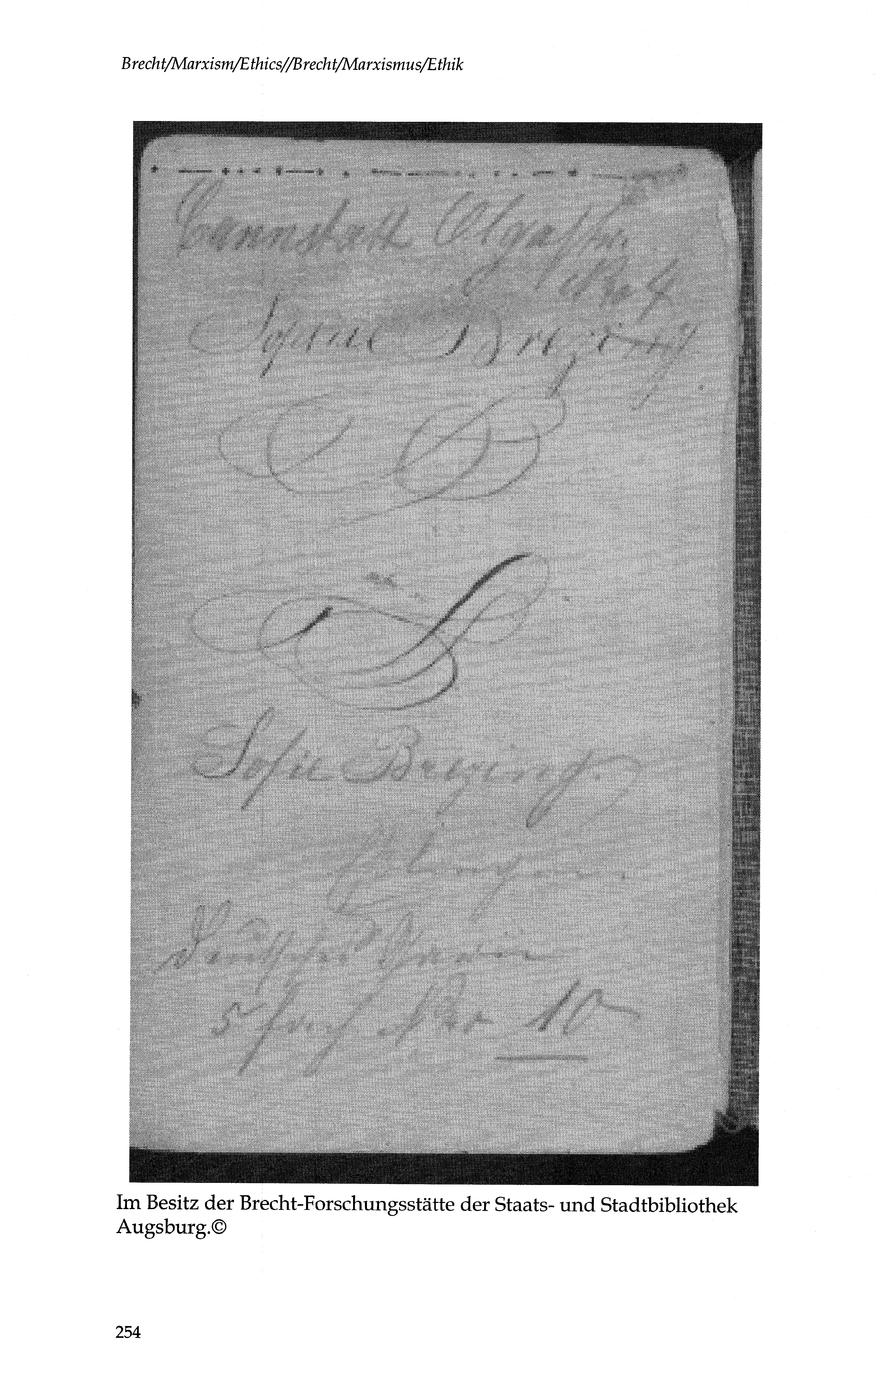 Brecht/Marxism/Ethics//Brecht/Marxismus/Ethik
Cannstatt Olgastr.
Nro 4
Sofie Brezing
Sofie Brezing.
Deutsches
5 fach Nro 10
Im Besitz der Brecht-Forschungsstätte der Staats- und Stadtbibliothek
Augsburg.©
254